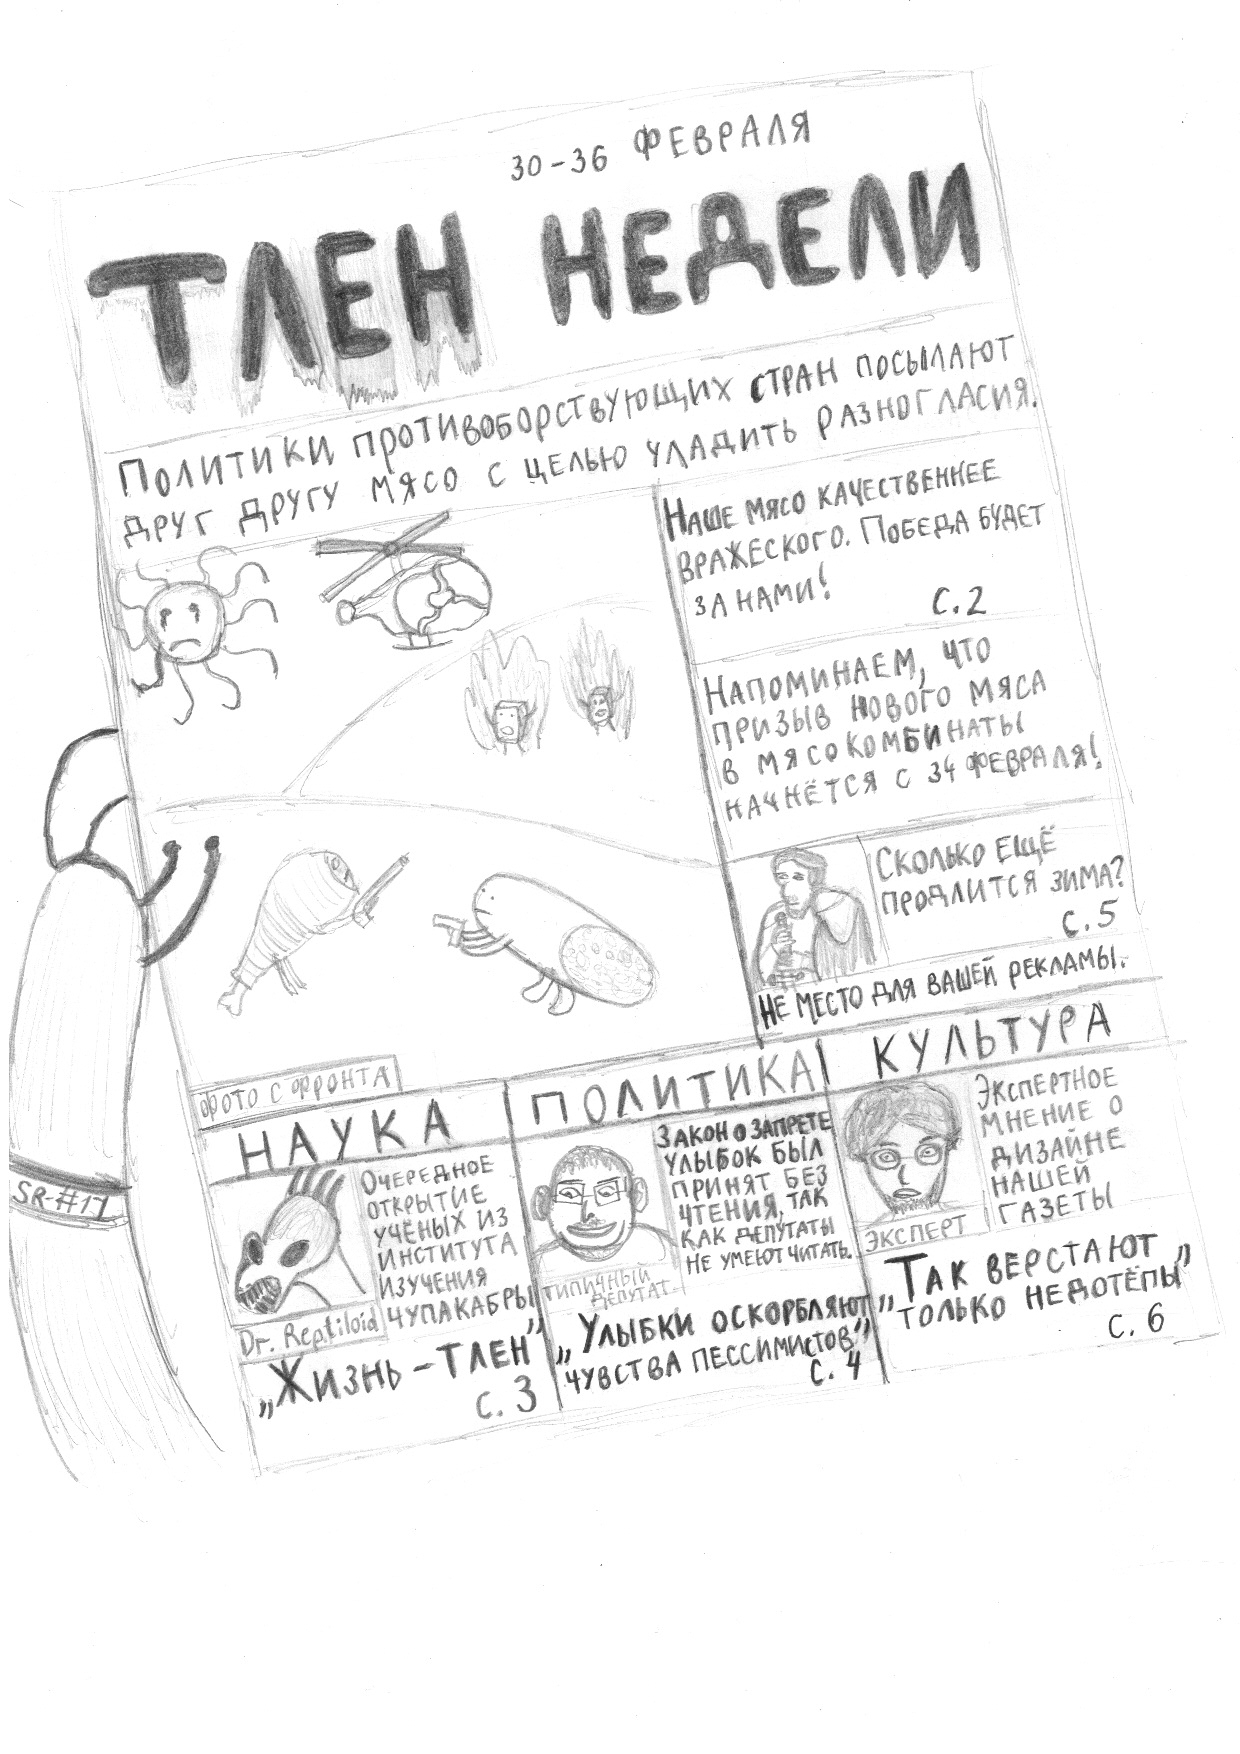 30-36 ФЕВРАЛЯ
ТЛЕН НЕДЕЛИ
ПОЛИТИКИ ПРОТИВОБОРСТВУЮЩИХ СТРАН ПОСЫЛАЮТ
ДРУГ ДРУГУ МЯСО С ЦЕЛЬЮ УЛАДИТЬ РАЗНОГЛАСИЯ.
НАШЕ МЯСО КАЧЕСТВЕННЕЕ
ВРАЖЕСКОГО. ПОБЕДА БУДЕТ
ЗА НАМИ!
С.2
НАПОМИНАЕМ, ЧТО
ПРИЗЫВ НОВОГО МЯСА
В МЯСОКОМБИНАТЫ
НАЧНЁТСЯ С 34 ФЕВРАЛЯ!
СКОЛЬКО ЕЩЁ
ПРОДЛИТСЯ ЗИМА?
С.5
НЕ МЕСТО ДЛЯ ВАШЕЙ РЕКЛАМЫ.
ФОТО С ФРОНТА
НАУКА
ОЧЕРЕДНОЕ
ОТКРЫТИЕ
УЧЁНЫХ ИЗ
ИНСТИТУТА
ИЗУЧЕНИЯ
ЧУПАКАБРЫ
Dr. Reptiloid
„ЖИЗНЬ – ТЛЕН”
С. 3
ПОЛИТИКА
ЗАКОН О ЗАПРЕТЕ
УЛЫБОК БЫЛ
ПРИНЯТ БЕЗ
ЧТЕНИЯ, ТАК
КАК ДЕПУТАТЫ
НЕ УМЕЮТ ЧИТАТЬ.
ТИПИЧНЫЙ
ДЕПУТАТ
„УЛЫБКИ ОСКОРБЛЯЮТ
ЧУВСТВА ПЕССИМИСТОВ”
С. 4
КУЛЬТУРА
ЭКСПЕРТНОЕ
МНЕНИЕ О
ДИЗАЙНЕ
НАШЕЙ
ГАЗЕТЫ
ЭКСПЕРТ
„ТАК ВЕРСТАЮТ
ТОЛЬКО НЕДОТЁПЫ”
С. 6
SR-#17